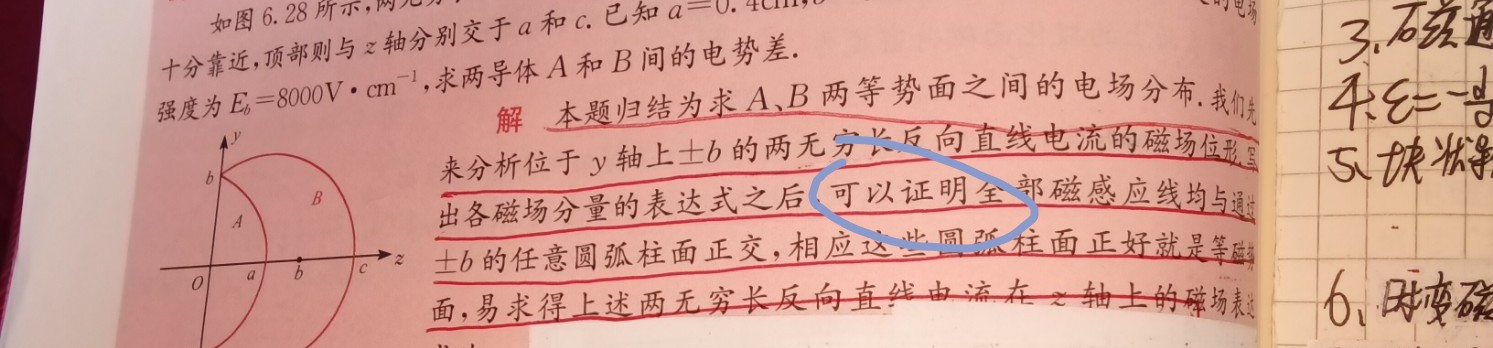 如图6.28所示,两无
十分靠近,顶部则与z轴分别交于a和c.已知a=0.4cm,
强度为E_b=8000V·cm⁻¹,求两导体A和B间的电势差.
解 本题归结为求A、B两等势面之间的电场分布.我们先
来分析位于y轴上±b的两无穷长反向直线电流的磁场位形,写
出各磁场分量的表达式之后,可以证明全部磁感应线均与通过
±b的任意圆弧柱面正交,相应这些圆弧柱面正好就是等磁势
面,易求得上述两无穷长反向直线电流在z轴上的磁场表达
y
b
A
B
O
a
b
c
z
的电场
3、磁通
4、ε=-d
5、块状导
6、时变磁